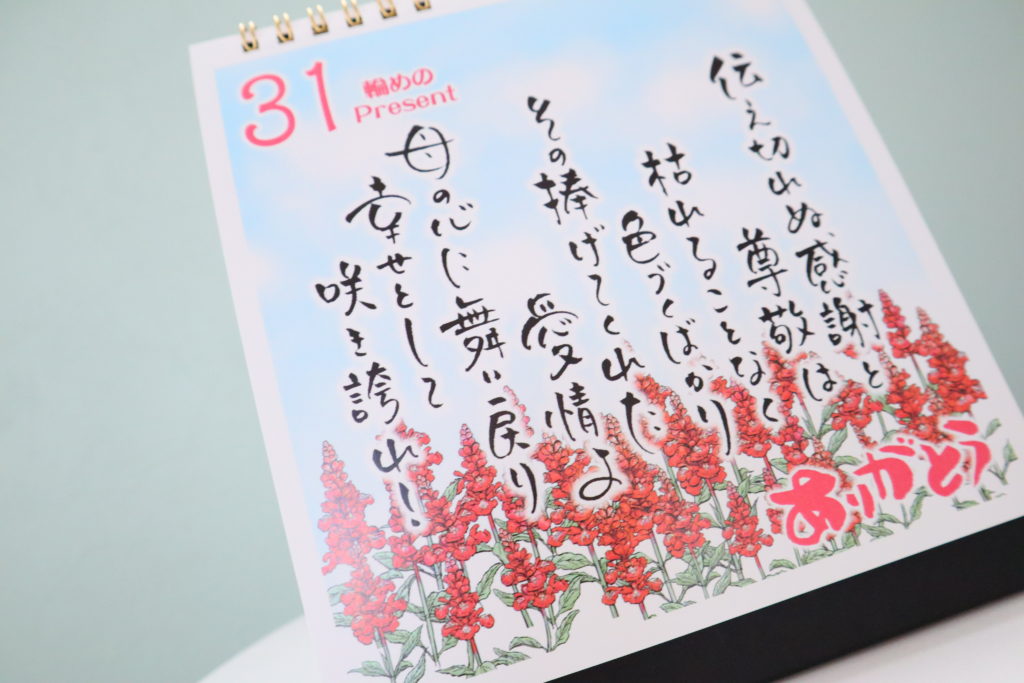 31
輪めの
Present
伝え切れぬ感謝と
尊敬は
枯れることなく
色づくばかり
その捧げてくれた
愛情よ
母の心に舞い戻り
幸せとして
咲き誇れ!
ありがとう